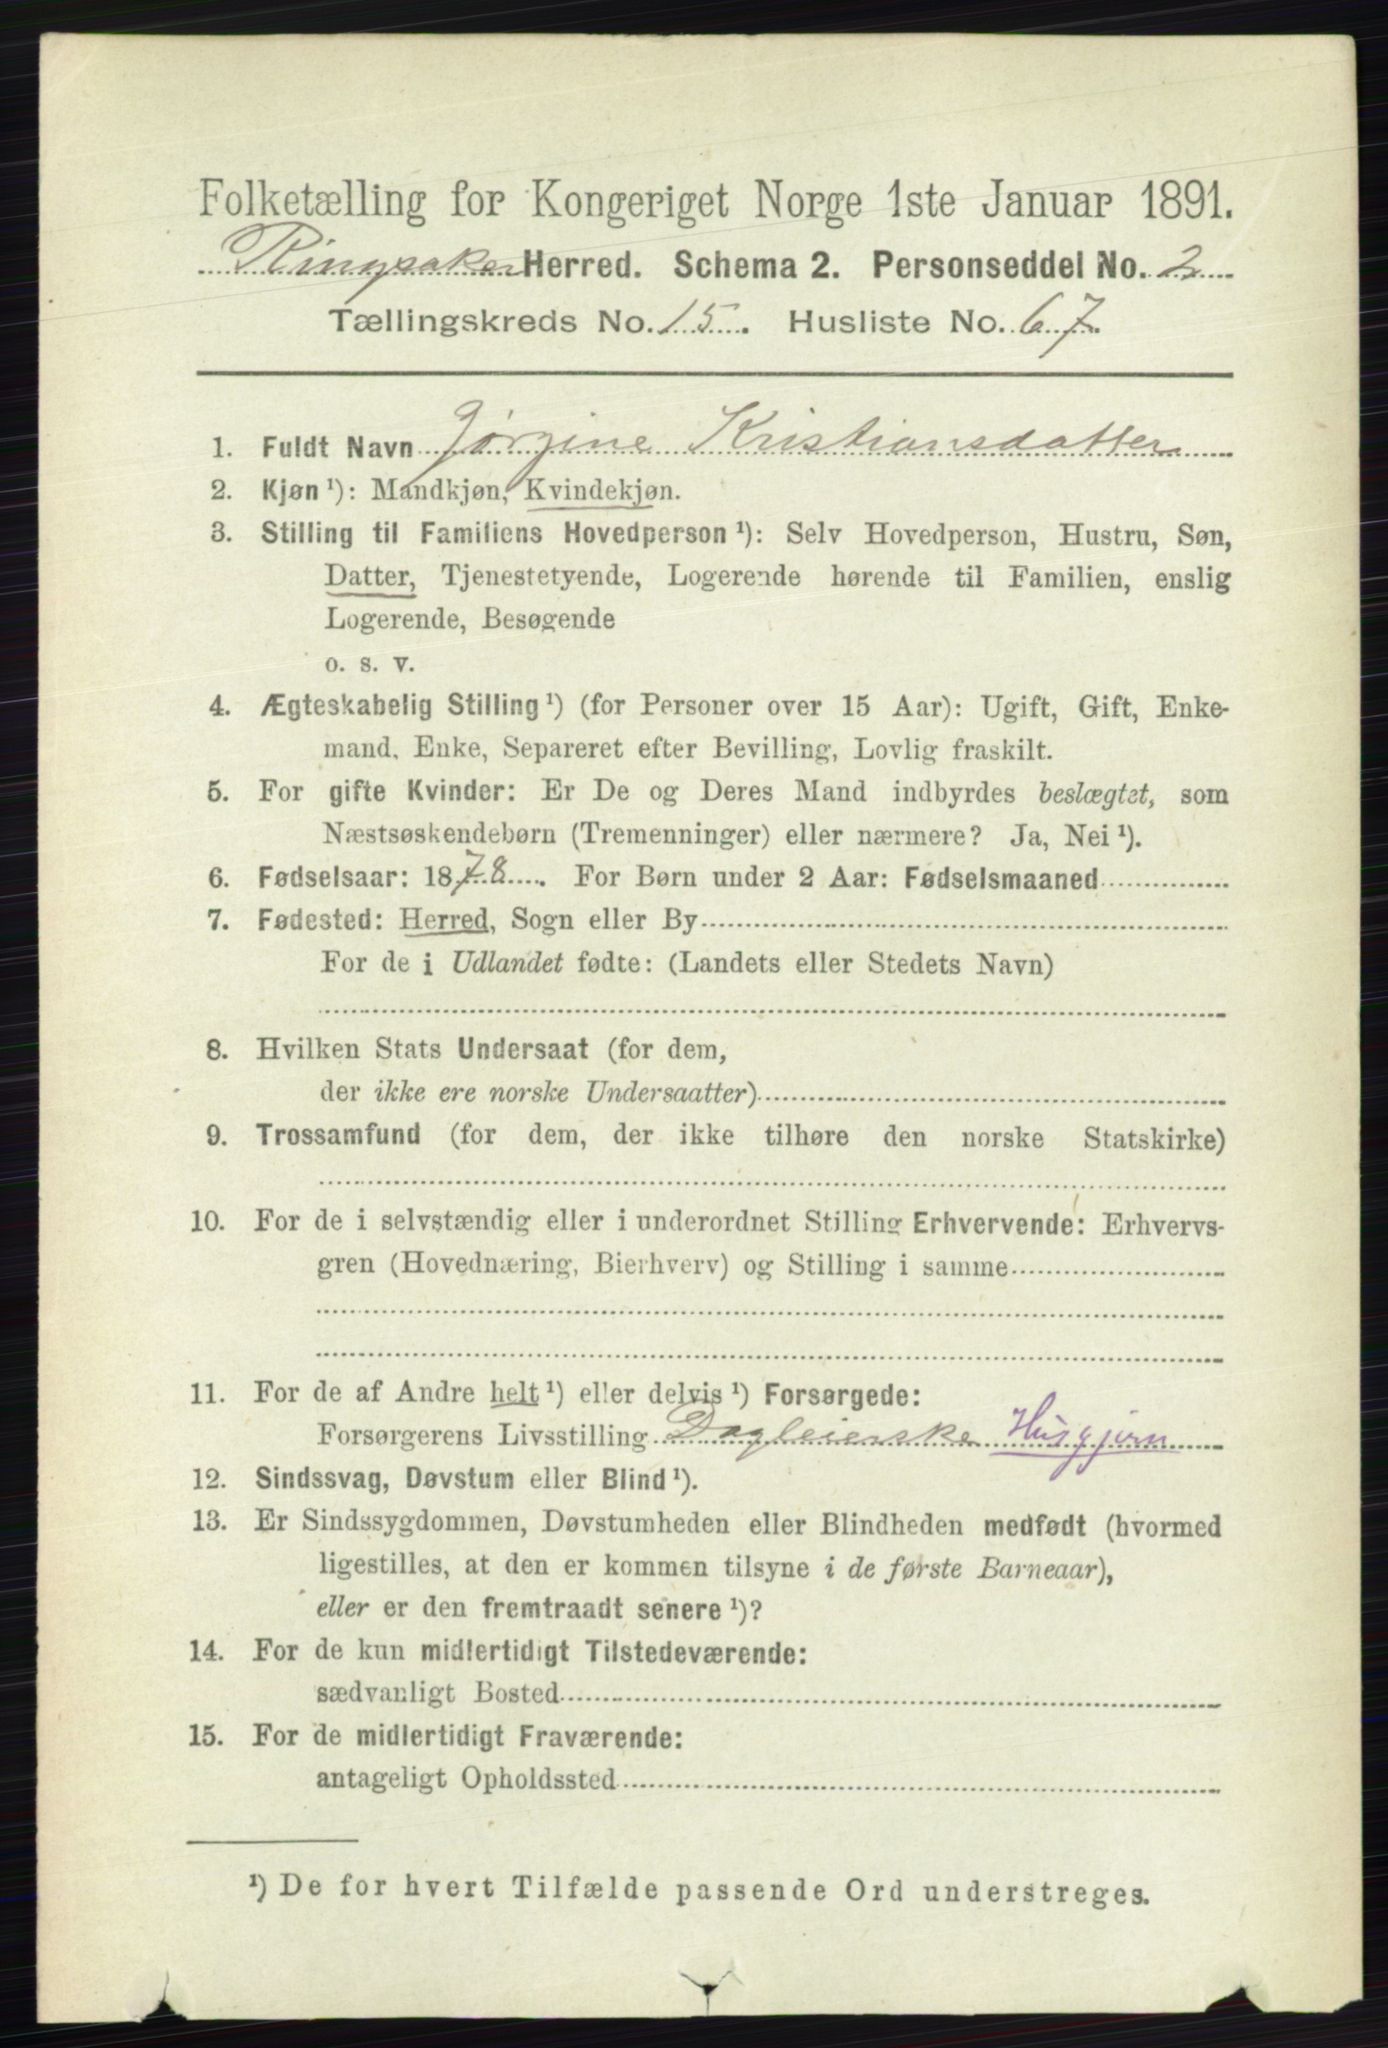 Folketælling for Kongeriget Norge 1ste Januar 1891.
Ringsaker Herred. Schema 2. Personseddel No. 2
Tællingskreds No. 15. Husliste No. 67
1. Fuldt Navn Jørgine Kristiansdatter
2. Kjøn ¹): Mandkjøn, Kvindekjøn.
3. Stilling til Familiens Hovedperson ¹): Selv Hovedperson, Hustru, Søn,
Datter, Tjenestetyende, Logerende hørende til Familien, enslig
Logerende, Besøgende
o. s. v.
4. Ægteskabelig Stilling ¹) (for Personer over 15 Aar): Ugift, Gift, Enke-
mand, Enke, Separeret efter Bevilling, Lovlig fraskilt.
5. For gifte Kvinder: Er De og Deres Mand indbyrdes beslægtet, som
Næstsøskendebørn (Tremenninger) eller nærmere? Ja, Nei ¹).
6. Fødselsaar: 1878. For Børn under 2 Aar: Fødselsmaaned
7. Fødested: Herred, Sogn eller By
For de i Udlandet fødte: (Landets eller Stedets Navn)
8. Hvilken Stats Undersaat (for dem,
der ikke ere norske Undersaatter)
9. Trossamfund (for dem, der ikke tilhøre den norske Statskirke)
10. For de i selvstændig eller i underordnet Stilling Erhvervende: Erhvervs-
gren (Hovednæring, Bierhverv) og Stilling i samme
11. For de af Andre helt ¹) eller delvis ¹) Forsørgede:
Forsørgerens Livsstilling Dagleierske Husgjern
12. Sindssvag, Døvstum eller Blind ¹).
13. Er Sindssygdommen, Døvstumheden eller Blindheden medfødt (hvormed
ligestilles, at den er kommen tilsyne i de første Barneaar),
eller er den fremtraadt senere ¹)?
14. For de kun midlertidigt Tilstedeværende:
sædvanligt Bosted
15. For de midlertidigt Fraværende:
antageligt Opholdssted
¹) De for hvert Tilfælde passende Ord understreges.